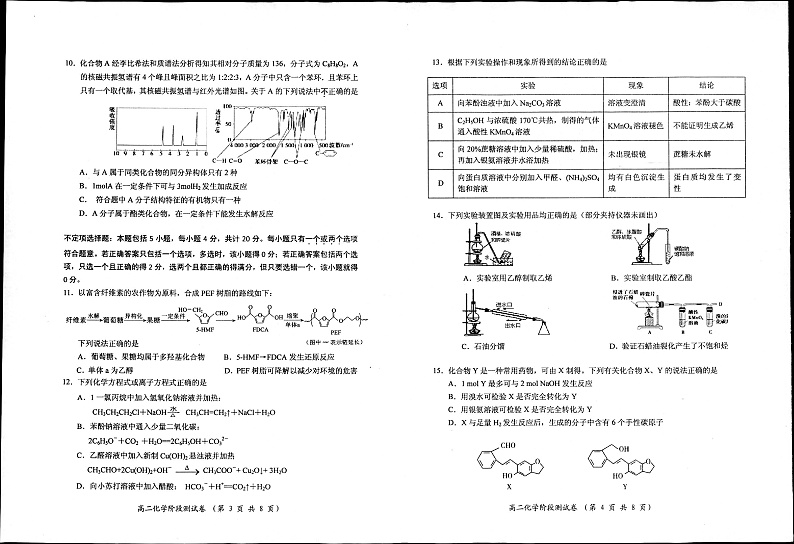 10．化合物 A 经李比希法和质谱法分析得知其相对分子质量为 136，分子式为 C₈H₈O₂，A
的核磁共振氢谱有 4 个峰且峰面积之比为 1:2:2:3，A 分子中只含一个苯环，且苯环上
只有一个取代基，其核磁共振氢谱与红外光谱如图。关于 A 的下列说法中不正确的是
吸收强度
10 9 8 7 6 5 4 3 2 1 0
透过率%
100
50
0
4 000 3 000 2 000 1 500 1 000 500 波数/cm⁻¹
C—H C=O 苯环骨架 C—O—C C—
A．与 A 属于同类化合物的同分异构体只有 2 种
B．1molA 在一定条件下可与 3molH₂ 发生加成反应
C．符合题中 A 分子结构特征的有机物只有一种
D．A 分子属于酯类化合物，在一定条件下能发生水解反应
不定项选择题：本题包括 5 小题，每小题 4 分，共计 20 分。每小题只有一个或两个选项
符合题意。若正确答案只包括一个选项，多选时，该小题得 0 分；若正确答案包括两个选
项，只选一个且正确的得 2 分，选两个且都正确的得满分，但只要选错一个，该小题就得
0 分。
11．以富含纤维素的农作物为原料，合成 PEF 树脂的路线如下：
纤维素 水解 葡萄糖 异构化 果糖 一定条件 HO—CH₂ O CHO HO O O O OH 缩聚 单体a O O O O
5-HMF FDCA PEF
下列说法正确的是 （图中～表示链延长）
A．葡萄糖、果糖均属于多羟基化合物 B．5-HMF→FDCA 发生还原反应
C．单体 a 为乙醇 D．PEF 树脂可降解以减少对环境的危害
12．下列化学方程式或离子方程式正确的是
A．1 一氯丙烷中加入氢氧化钠溶液并加热：
CH₃CH₂CH₂Cl＋NaOH 水 △ CH₃CH=CH₂↑＋NaCl＋H₂O
B．苯酚钠溶液中通入少量二氧化碳：
2C₆H₅O⁻＋CO₂＋H₂O═2C₆H₅OH＋CO₃²⁻
C．乙醛溶液中加入新制 Cu(OH)₂ 悬浊液并加热
CH₃CHO+2Cu(OH)₂+OH⁻ △ CH₃COO⁻+ Cu₂O↓+ 3H₂O
D．向小苏打溶液中加入醋酸： HCO₃⁻＋H⁺═CO₂↑＋H₂O
高二化学阶段测试卷 （第 3 页 共 8 页）
13．根据下列实验操作和现象所得到的结论正确的是
选项 实验 现象 结论
A 向苯酚浊液中加入 Na₂CO₃ 溶液 溶液变澄清 酸性：苯酚大于碳酸
B C₂H₅OH 与浓硫酸 170℃共热，制得的气体
通入酸性 KMnO₄ 溶液 KMnO₄ 溶液褪色 不能证明生成乙烯
C 向 20%蔗糖溶液中加入少量稀硫酸，加热；
再加入银氨溶液并水浴加热 未出现银镜 蔗糖未水解
D 向蛋白质溶液中分别加入甲醛、(NH₄)₂SO₄
饱和溶液 均有白色沉淀生
成 蛋白质均发生了变
性
14．下列实验装置图及实验用品均正确的是（部分夹持仪器未画出）
水
A．实验室用乙醇制取乙烯 B．实验室制取乙酸乙酯
进水口
出水口
碎瓷片
酸性 KMnO₄ 溶液
A B C D
C．石油分馏 D．验证石蜡油裂化产生了不饱和烃
15．化合物 Y 是一种常用药物，可由 X 制得。下列有关化合物 X、Y 的说法正确的是
A．1 mol Y 最多可与 2 mol NaOH 发生反应
B．用溴水可检验 X 是否完全转化为 Y
C．用银氨溶液可检验 X 是否完全转化为 Y
D．X 与足量 H₂ 发生反应后，生成的分子中含有 6 个手性碳原子
CHO HO O OH HO O
X Y
高二化学阶段测试卷 （第 4 页 共 8 页）